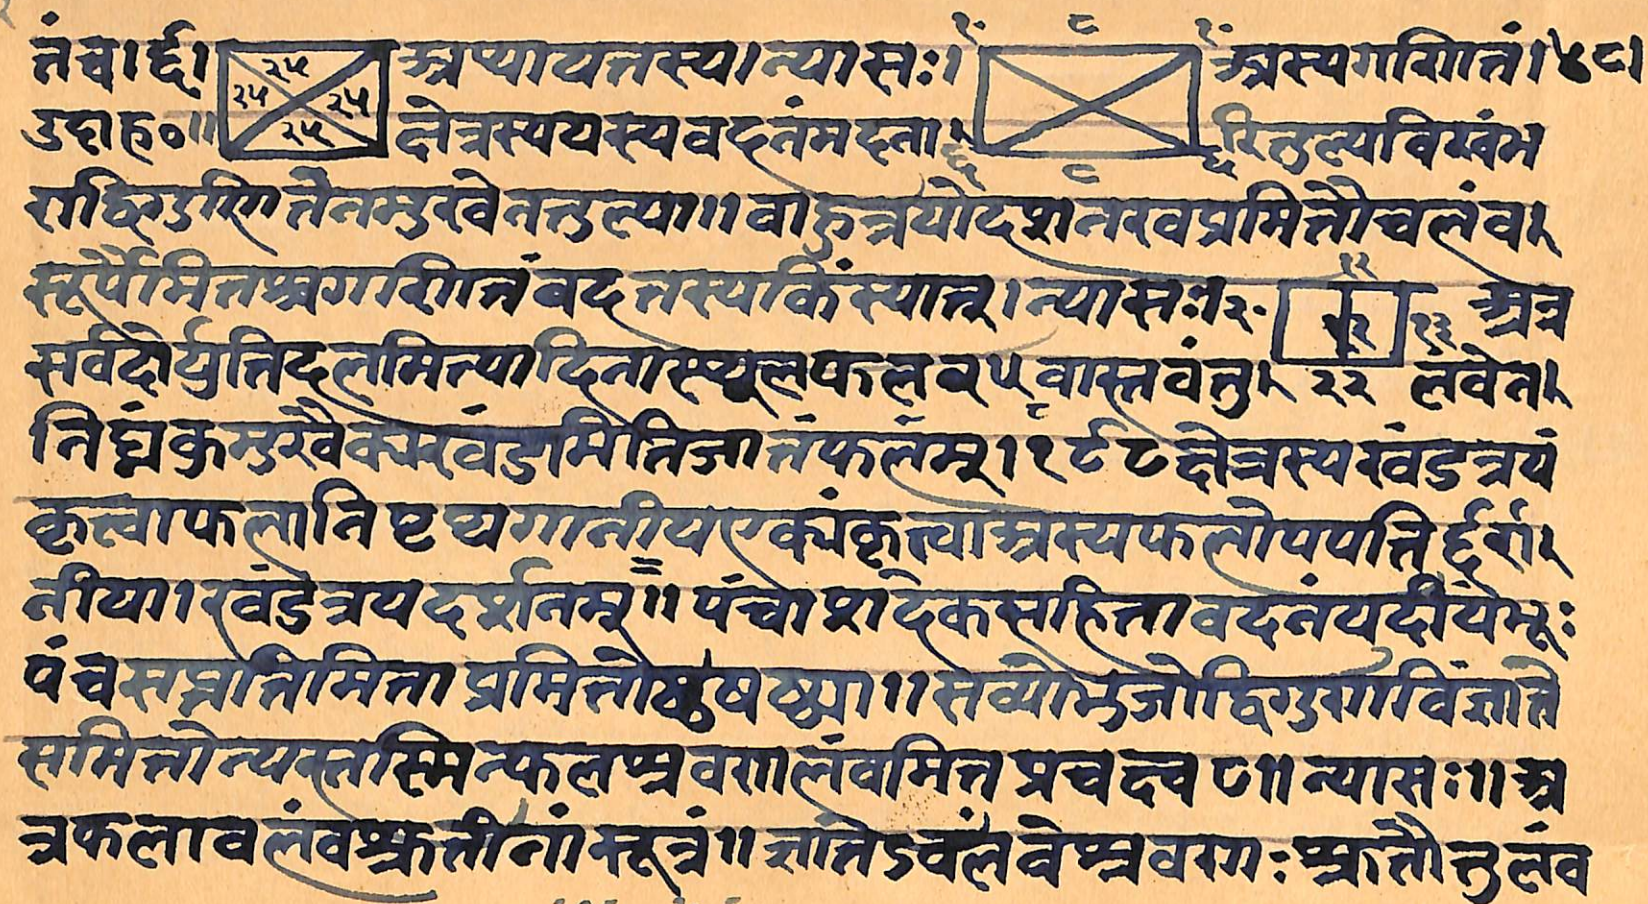 तं च । र्द्द । २५ २५ २५ २५ अथायतस्य । न्यासः । ८ ६ ६ ८ अस्य गणितं । ४८ ।
उदाह० ॥ क्षेत्रस्य यस्य वदनं मदना रितुल्यं विश्वंभ
रा द्विगुणितेन मुखेन तुल्या ॥ वाहू त्रयोदशनखप्रमितौ च लंवः
सूर्योन्मितश्च गणितं वद तस्य किं स्यात् । न्यासः । ११ २० १२ १३ अत्र
सर्वदोर्युतिदलमित्यादिना स्थूलफलं २५ वास्तवं तु । २२ लंवेन
निघ्नं कुमुखैक्यखंडमिति जातं फलम् । १९८ क्षेत्रस्य खंडत्रयं
कृत्वा फलानि पृथगानीय एक्यं कृत्वा अस्य फलोपपत्तिर्द्दर्श
नीया । खंडत्रयदर्शनम् ॥ पंचाशदेकसहिता वदनं यदीयं भूः
पंचसप्ततिमिता प्रमितोष्टषष्ट्या ॥ सव्यो भुजो द्विगुणविंशति
संमितोन्यस्तस्मिन्फलश्रवणलंवमिति प्रचक्ष्व ॥ न्यासः ॥ अ
त्र फलावलंवश्रुतीनां सूत्रं ॥ ज्ञातेऽवलंवे श्रवणः श्रुतौ तु लंव